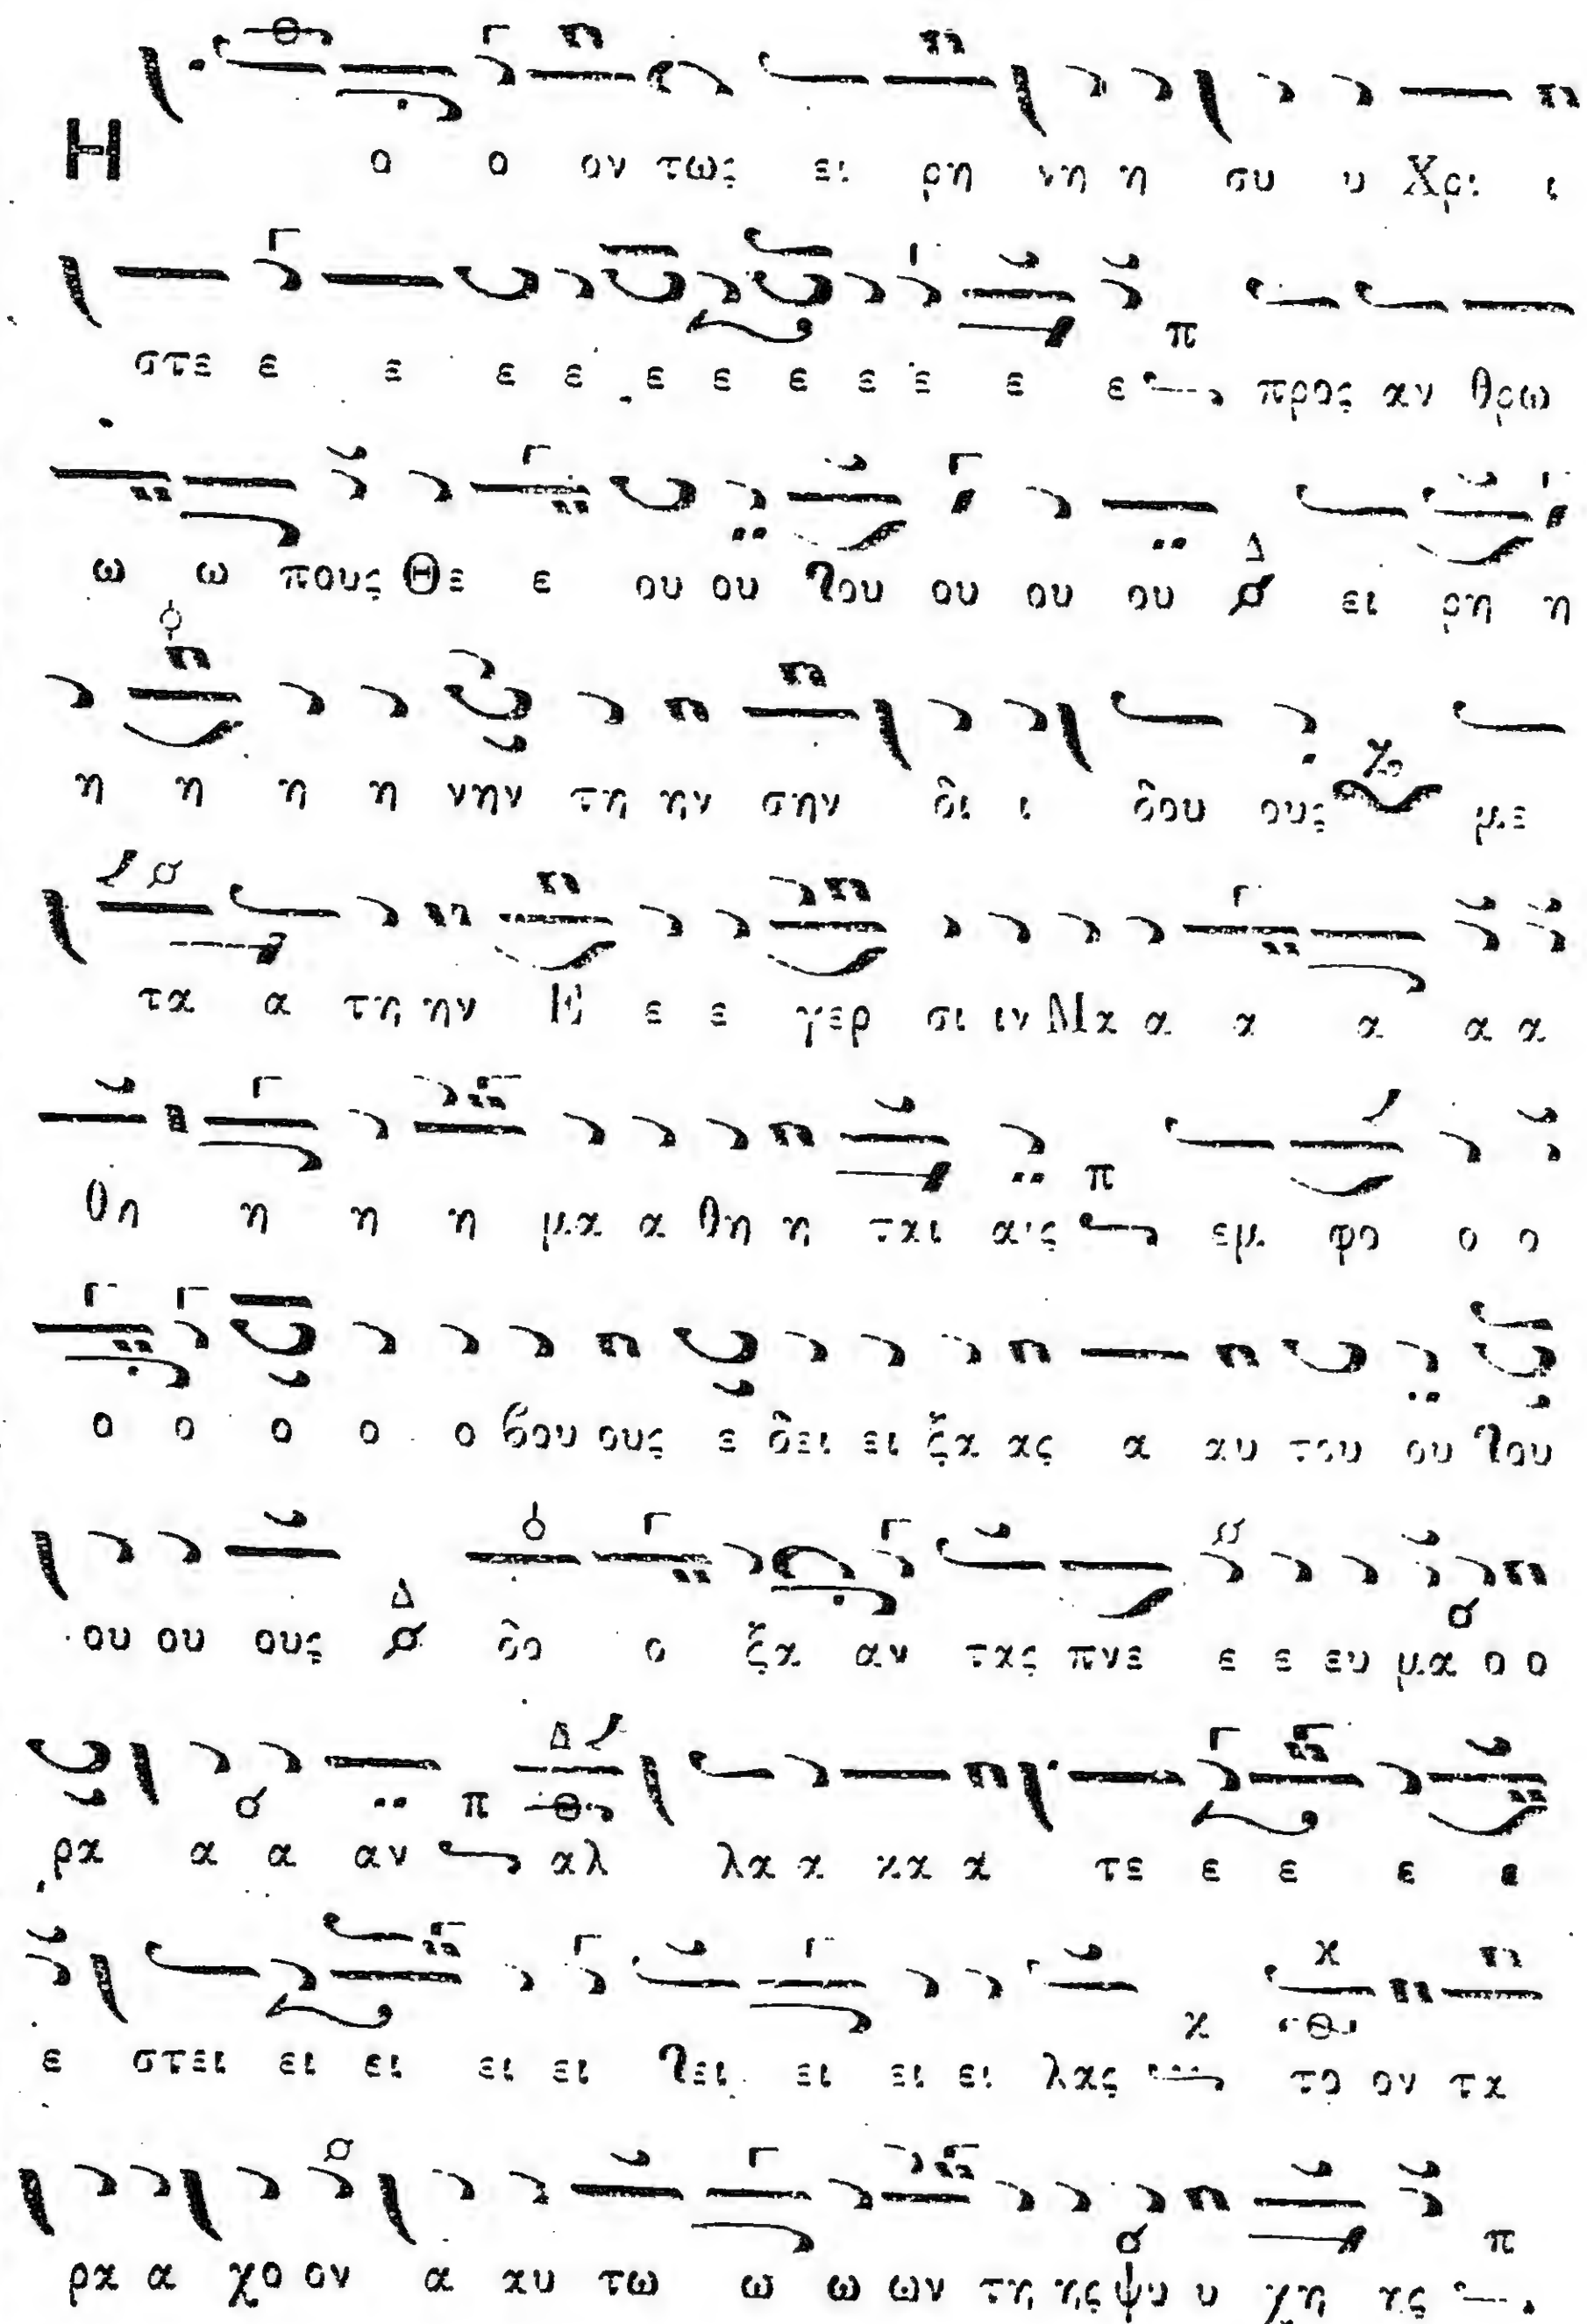 Η ο ο ον τως ει ρη νη η συ υ Χρι ι
στε ε ε ε ε ε ε ε ε ε ε ε προς αν θρω
ω ω πους Θε ε ου ου ȣου ου ου ου ει ρη η
η η η η νην τη ην σην δι ι δου ους με
τα α τη ην Ε ε ε γερ σι ιν Μα α α α α α
θη η η η μα α θη η ται αις εμ φο ο ο
ο ο ο ο ο βου ους ε δει ει ξα ας α αυ του ου ȣου
ου ου ους δο ο ξα αν τας πνε ε ε ευ μα ο ο
ρα α α αν αλ λα α κα α τε ε ε ε ε
ε στει ει ει ει ει ȣει ει ει ει λας το ον τα
ρα α χο ον α αυ τω ω ω ων τη ης ψυ υ χη ης